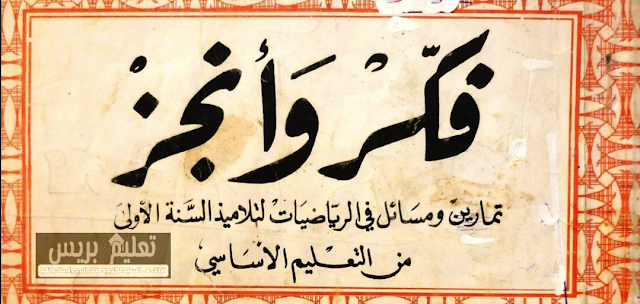 فكّرْ وَأنجزْ
تمارين ومسَائل في الرياضيَات لتلاميذ السَّنة الأولى
من التعْليم الأسَاسي
تعليم بريس